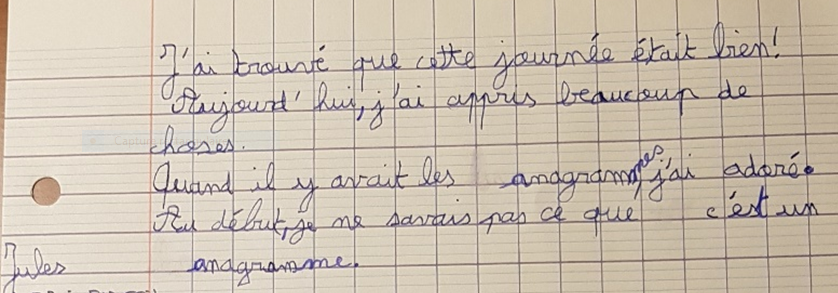 J'ai trouvé que cette journée était bien!
Aujourd'hui, j'ai appris beaucoup de
choses.
Quand il y avait les anagrammes j'ai adoré.
Au début, je ne savais pas ce que c'est un
Jules anagramme.